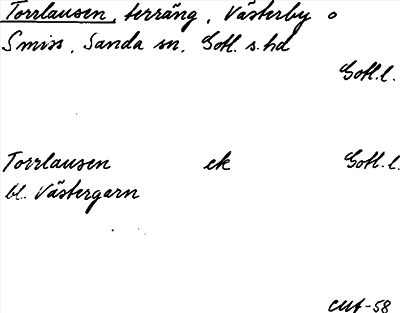 Torrlausen, terräng, Västerby o
Smiss, Sanda sn, Gotl. s. hd
Gotl. l.
Torrlausen ek Gotl. l.
bl. Västergarn
-58